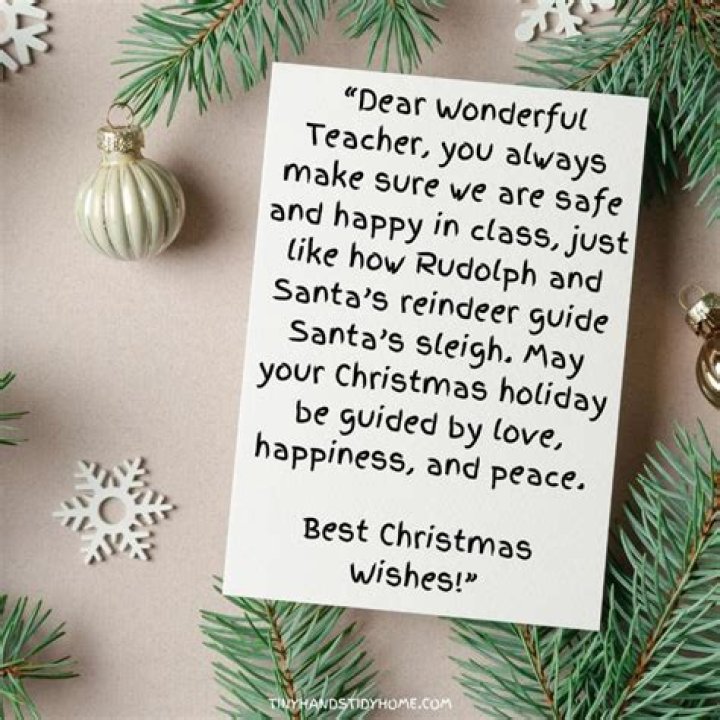 “Dear Wonderful
Teacher, you always
make sure we are safe
and happy in class, just
like how Rudolph and
Santa’s reindeer guide
Santa’s sleigh. May
your Christmas holiday
be guided by love,
happiness, and peace.
Best Christmas
Wishes!”
TINYHANDSTIDYHOME.COM